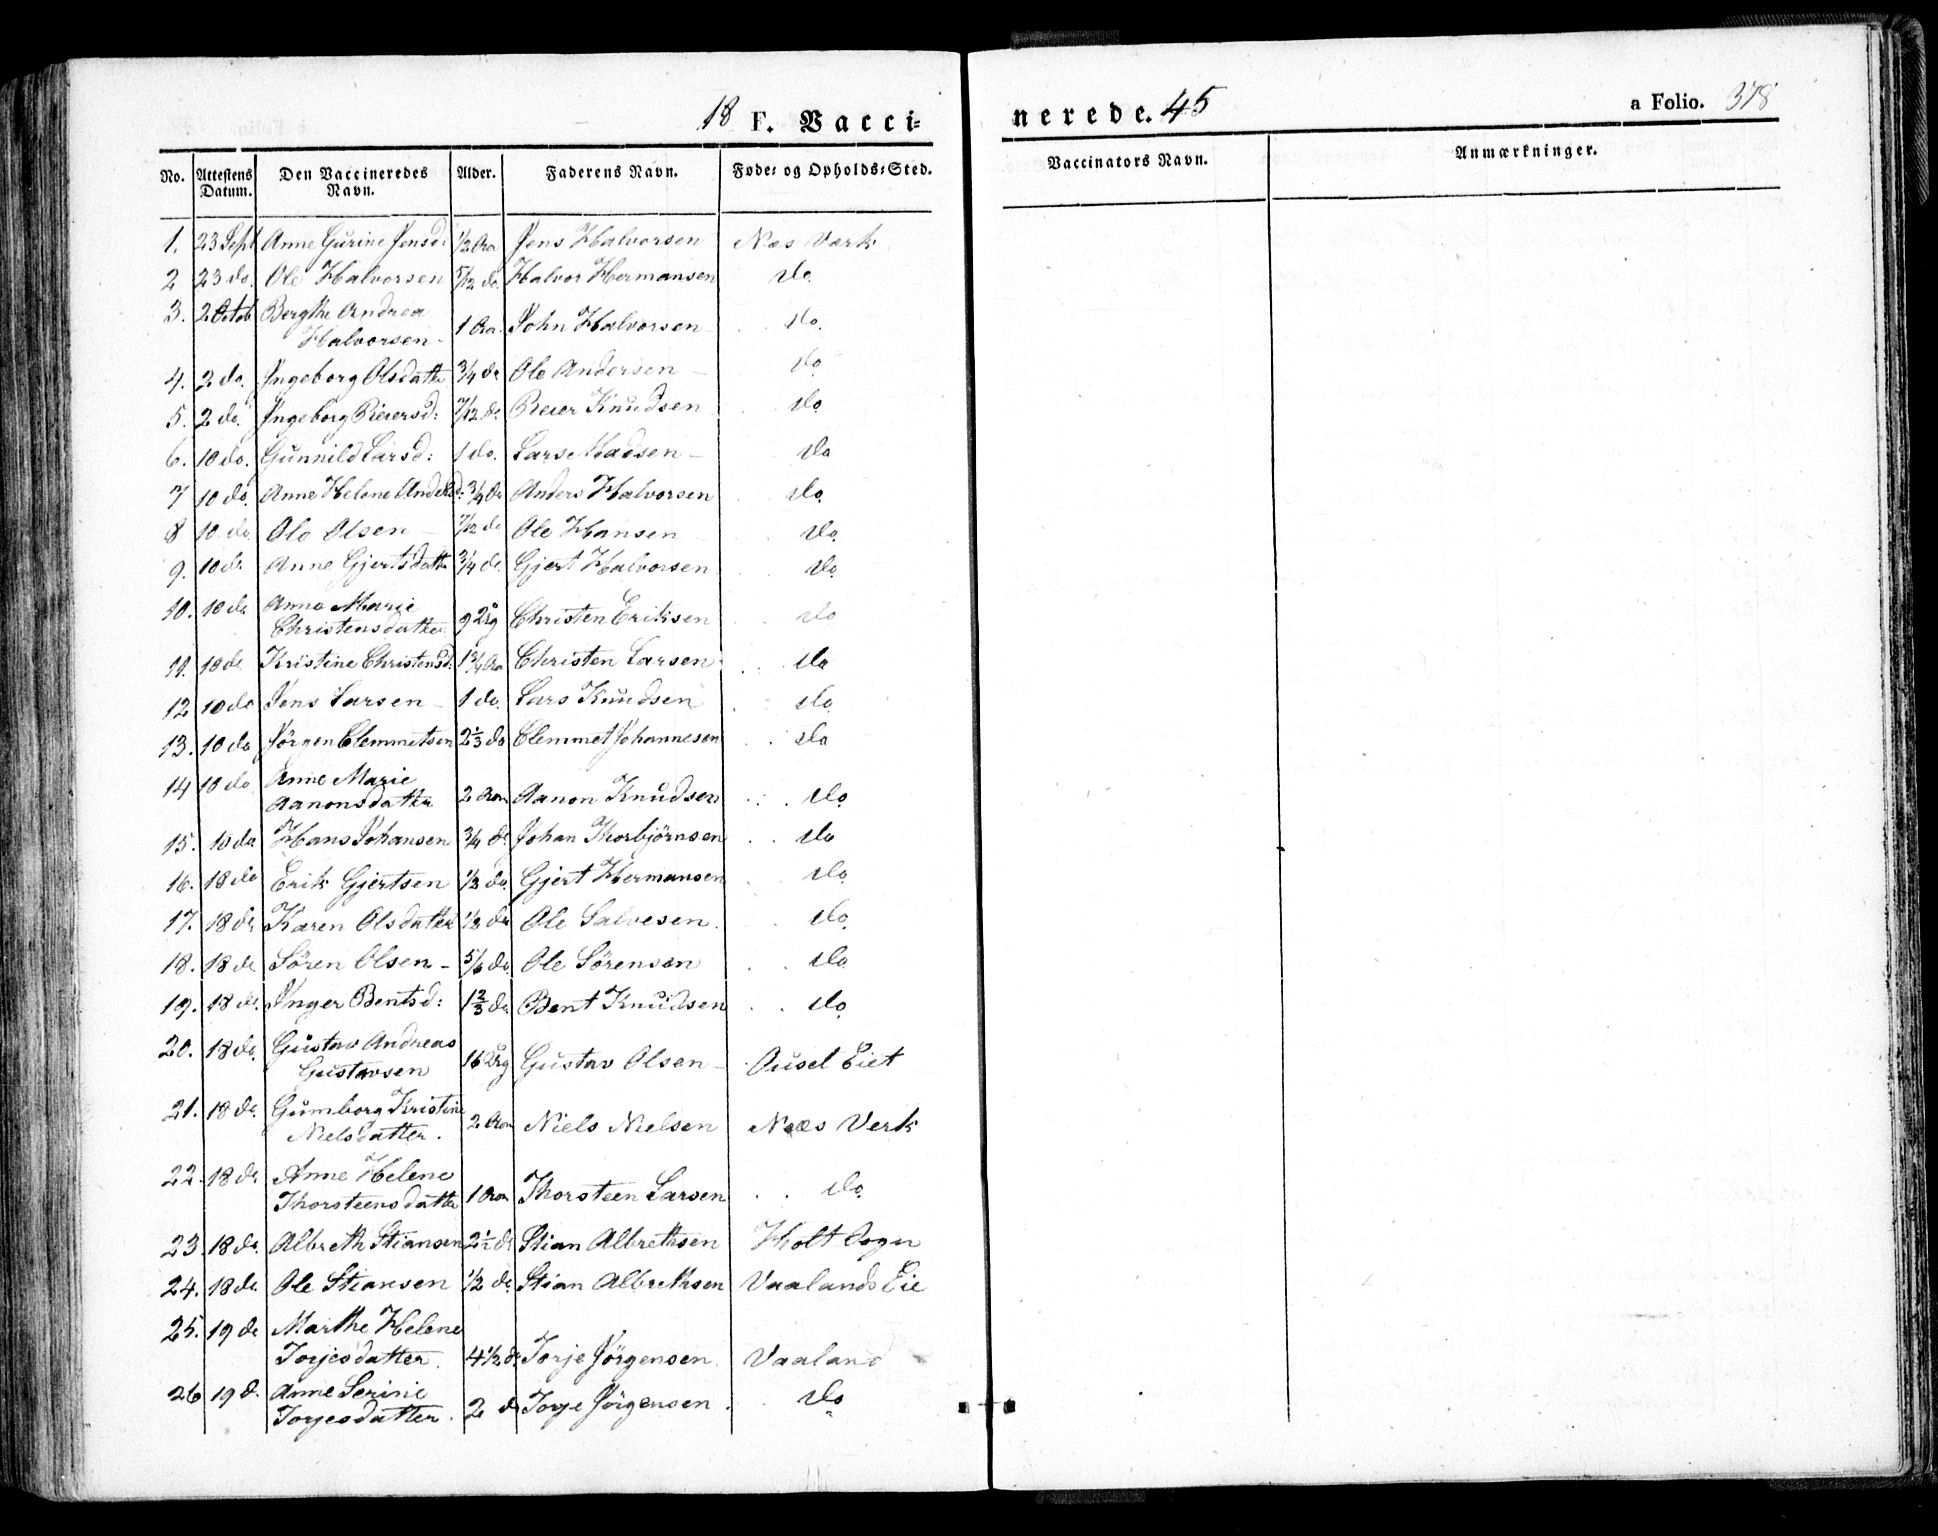 18 F. Vacci= nerede. 45 a Folio. 378
No. Attestens Datum. Den Vaccineredes Navn. Alder. Faderens Navn. Føde= og Opholds=Sted. Vaccinators Navn. Anmærkninger.
1. 23 Sept Anne Gurine Jensd: 1/2 Aar Jens Halvorsen Næs Værk
2 23 do. Ole Halvorsen 5/12 do. Halvor Hermansen do.
3. 2 Octob Bergthe Andrea
Halvorsen - 1 Aar. John Halvorsen do.
4. 2 do. Ingeborg Olsdatter 3/4 do Ole Andersen do
5. 2 do. Ingeborg Reiersd: 7/12 do. Reier Knudsen do
6. 10 do. Gunnild Larsd: 1 do. Lars Madsen - do
7 10 do. Anne Helene Andersd: 3/4 do Anders Halvorsen do.
8 10 do Ole Olsen 7/12 do Ole Hansen do.
9. 10 do. Anne Gjertsdatter 3/4 do. Gjert Halvorsen do
10. 10 do Anne Marie
Christensdatter 9 Christen Eriksen do
11. 10 do. Kristine Christensd: 1 3/4 Aar Christen Larsen do
12 10 do Jens Larsen - 1 do. Lars Knudsen do
13. 10 do Jørgen Clemmetsen 2 1/3 do Clemmet Johannesen do
14 10 do Anne Marie
Aanonsdatter 2 Aar Aanon Knudsen do
15. 10 do Hans Johansen 3/4 do. Johan Thorbjørnsen do
16. 18 do Erik Gjertsen 1/3 do. Gjert Hermansen do.
17. 18 do Karen Olsdatter 1/3 do Ole Salvesen. do.
18. 18 do Søren Olsen - 5/6 do. Ole Sørensen do
19. 18 do. Inger Bentsd: 1 2/3 do. Bent Knudsen do
20. 18 do. Gustav Andreas
Gustavsen 16 Gustav Olsen - Ousel Eiet
21. 18 do. Gumborg Kristine
Nielsdatter. 2 Aar Niels Nielsen Næs Verk
22. 18 do Anne Helene
Thorsteensdatter 1 Aar Thorsteen Larsen do.
23 18 do. Albreth Stiansen 2 1/2 do Stian Albrethsen Holt Sogn
24. 18 do. Ole Stiansen 1/2 do. Stian Albrethsen Vaalands Eie
25. 19 do Marthe Helene
Torjesdatter. 4 1/2 do. Torje Jørgensen. Vaaland
26 19 d. Anne Serine
Torjesdatter. 2 do Torje Jørgensen. do